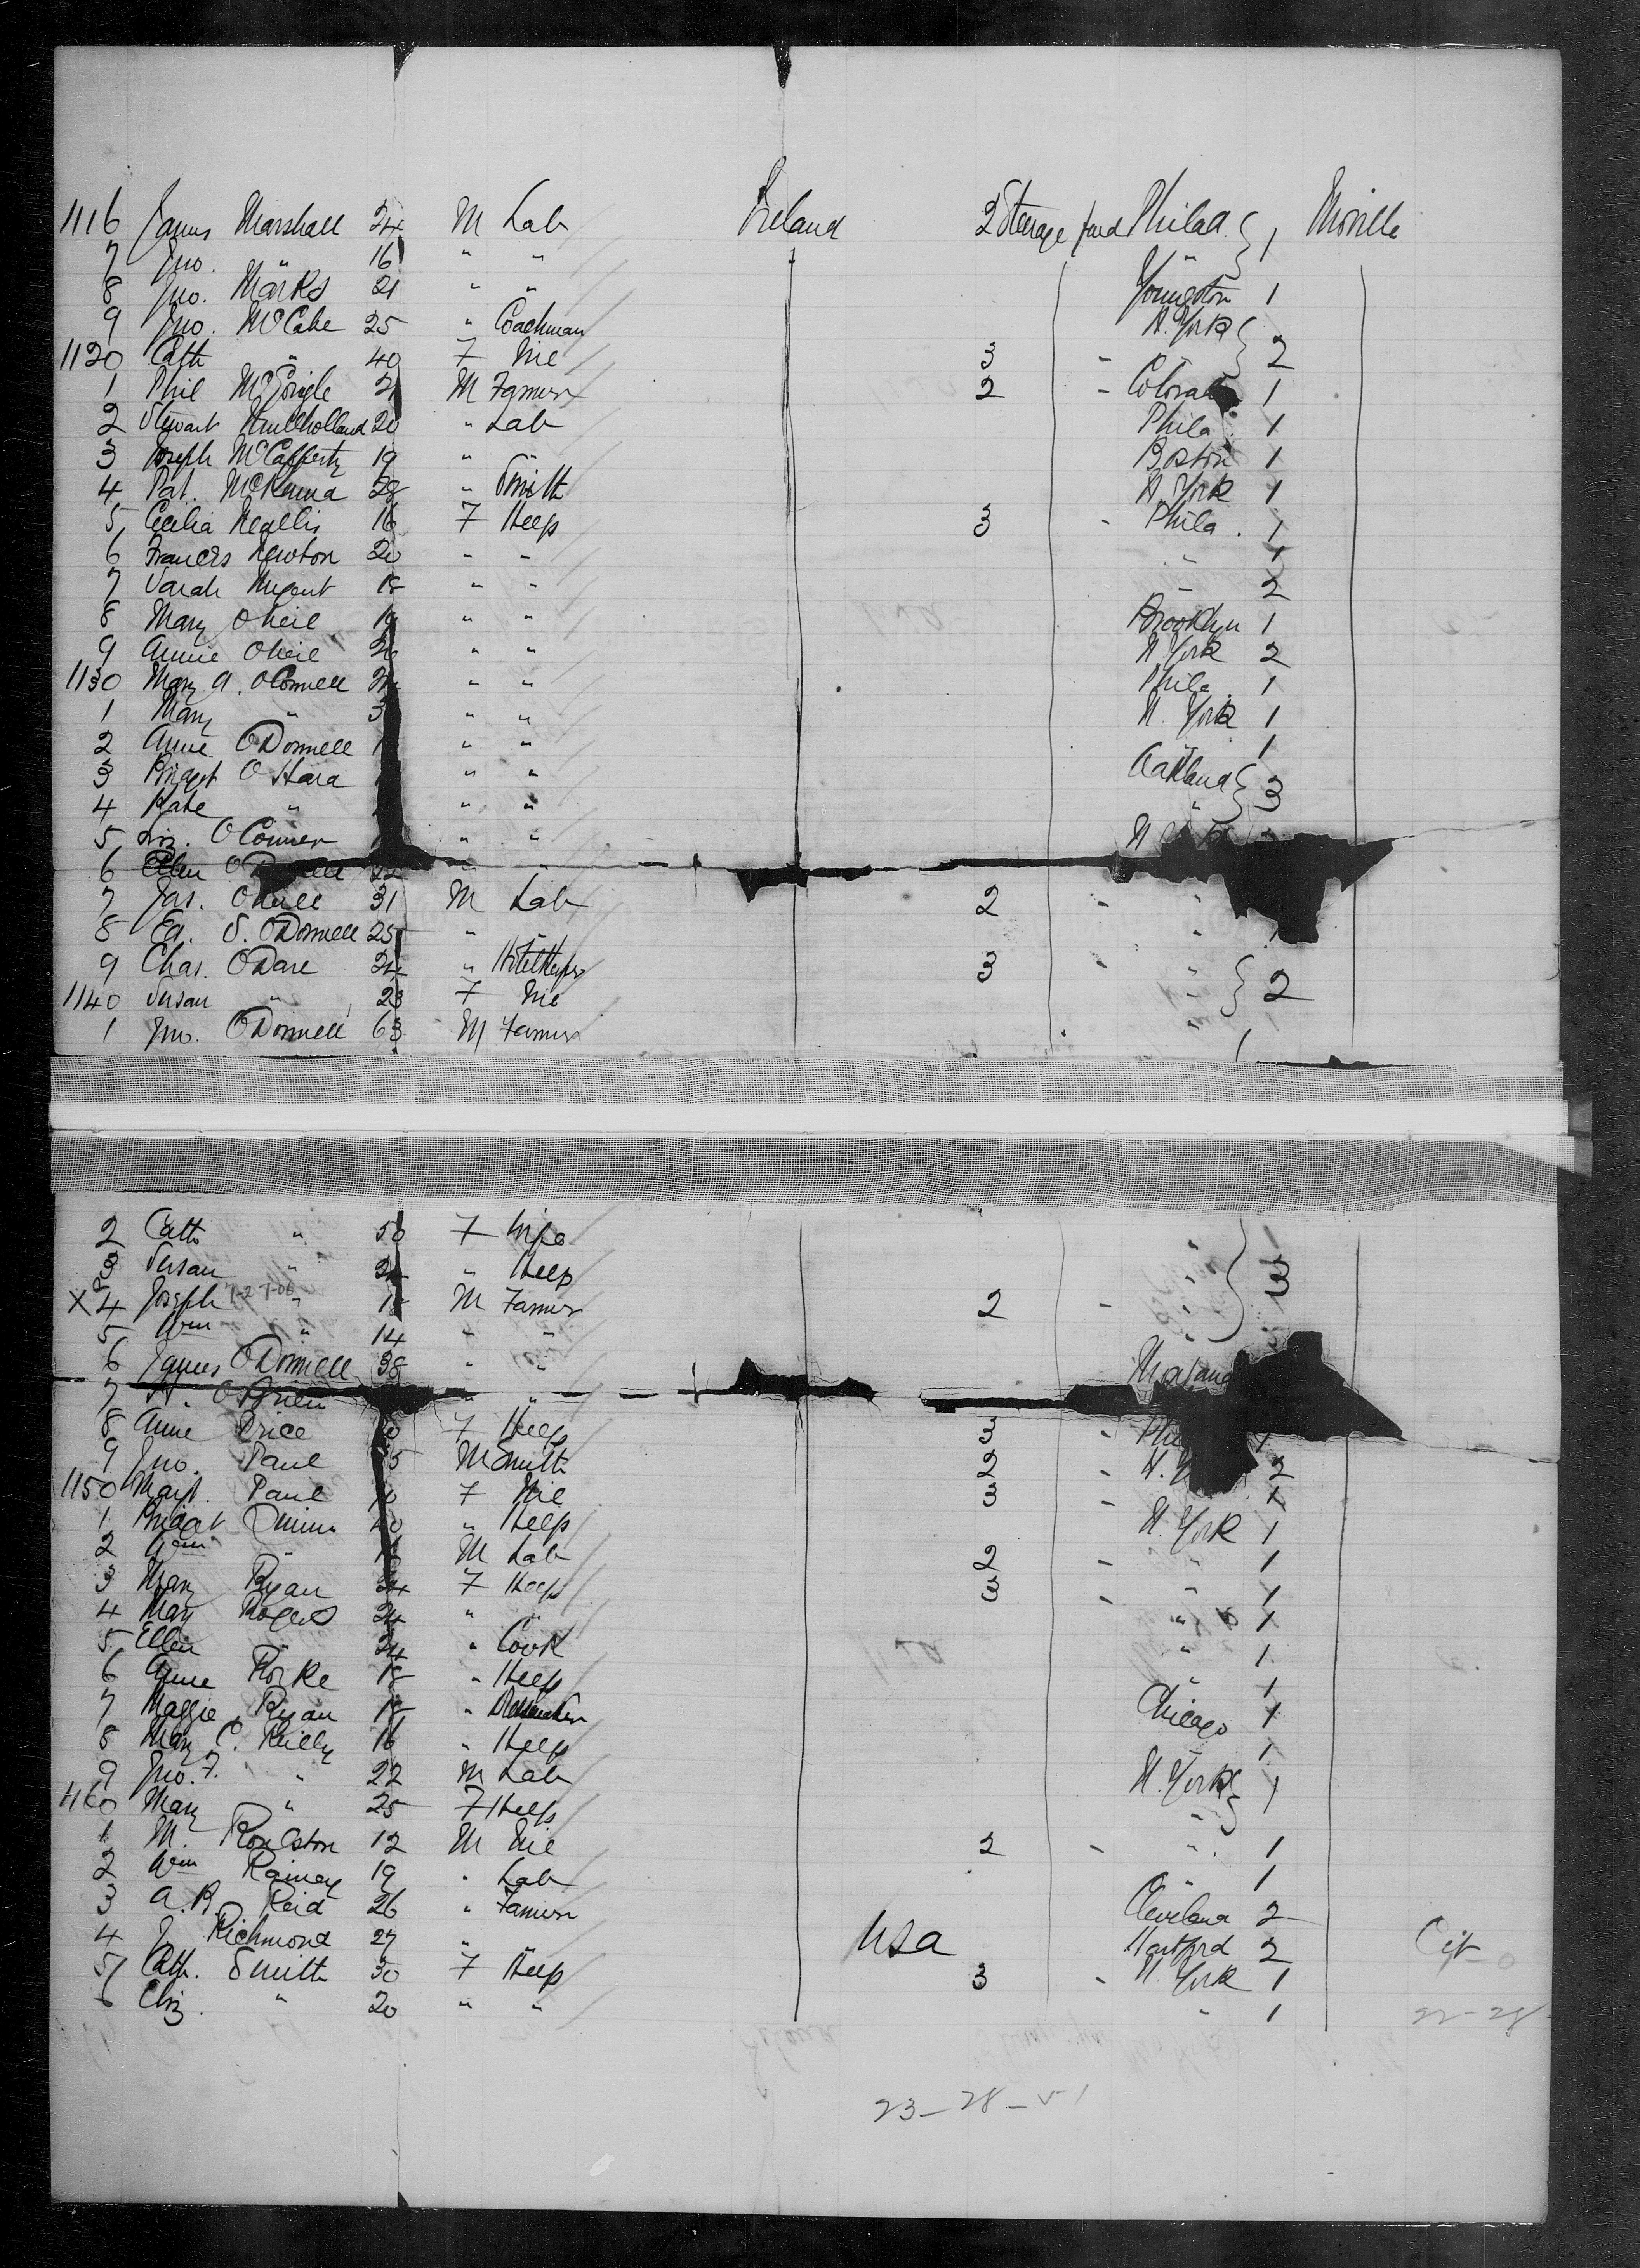 1116 James Marshall 24 M Lab Ireland 2 Steerage fwd Philad. 1 Moville
7 Jno. " 16 " " "
8 Jno. Marks 21 " " Youngston 1
9 Jno. McCabe 25 " Coachman N. York
1120 Cath " 40 F Nil 3 " 2
1 Phil McGonigle 21 M Farmer 2 " Colorado 1
2 Stewart Mullholland 20 " Lab Phila 1
3 Joseph McCafferty 19 " " Boston 1
4 Pat. McKenna 28 " Smith N. York 1
5 Cecilia 16 F Keep 3 " Phila. 1
6 Frances Newton 20 " " " 1
7 Sarah Nugent 18 " " " 2
8 Mary ONeil " " Brooklyn 1
9 Annie ONeil " " N. York 2
1130 Mary A. OConnell " " Phila. 1
1 Mary " 3 " " N. York 1
2 Annie ODonnell 1 " " " 1
3 Bridget OHara " " Oakland
4 Kate " " " " 3
5 OConner " " N
6 Ellen 22 " "
7 Jas. ONeill 31 M Lab 2 " "
8 Ed. S. ODonnell 25 " " "
9 Chas. ODare 24 " Hotelkeeper 3 " "
1140 Susan " 23 F Nil " 2
1 Jno. ODonnell 63 M Farmer " 1
2 Cath " 50 F Wife "
3 Susan " " Keep " 3
X 4 Joseph 7-27-06 " 18 M Farmer 2 " "
5 Wm " 14 " " "
6 James ODonnell 38 " "
7 OBrien " "
8 Annie Price F Keep 3 " 1
9 Jno. Paul M Smith 2 " N. 2
1150 Margt. Paul F Nil 3 " 1
1 Bridget Quinn " Keep N. York 1
2 Wm " M Lab 2 " " 1
3 Mary Ryan 34 F Keep 3 " " 1
4 Mary Rogers 24 " " " 1
5 Ellen 24 " Cook " 1
6 Annie Rorke 18 " Keep " 1
7 Maggie Ryan 18 " Chicago 1
8 Mary C. Reilly 16 " Keep " 1
9 Jno. F. " 22 M Lab N. York 1
1160 Mary " 25 F Keep "
1 M. Roulston 12 M Nil 2 " " 1
2 Wm Rainey 19 " Lab " 1
3 A. R. Reid 26 " Farmer Cleveland 2
4 J Richmond 27 " " USA Hartford 2 Cit
5 Cath. Smith 30 F Keep 3 " N. York 1
6 Eliz. " 20 " " " 1 22-28
23-28-51